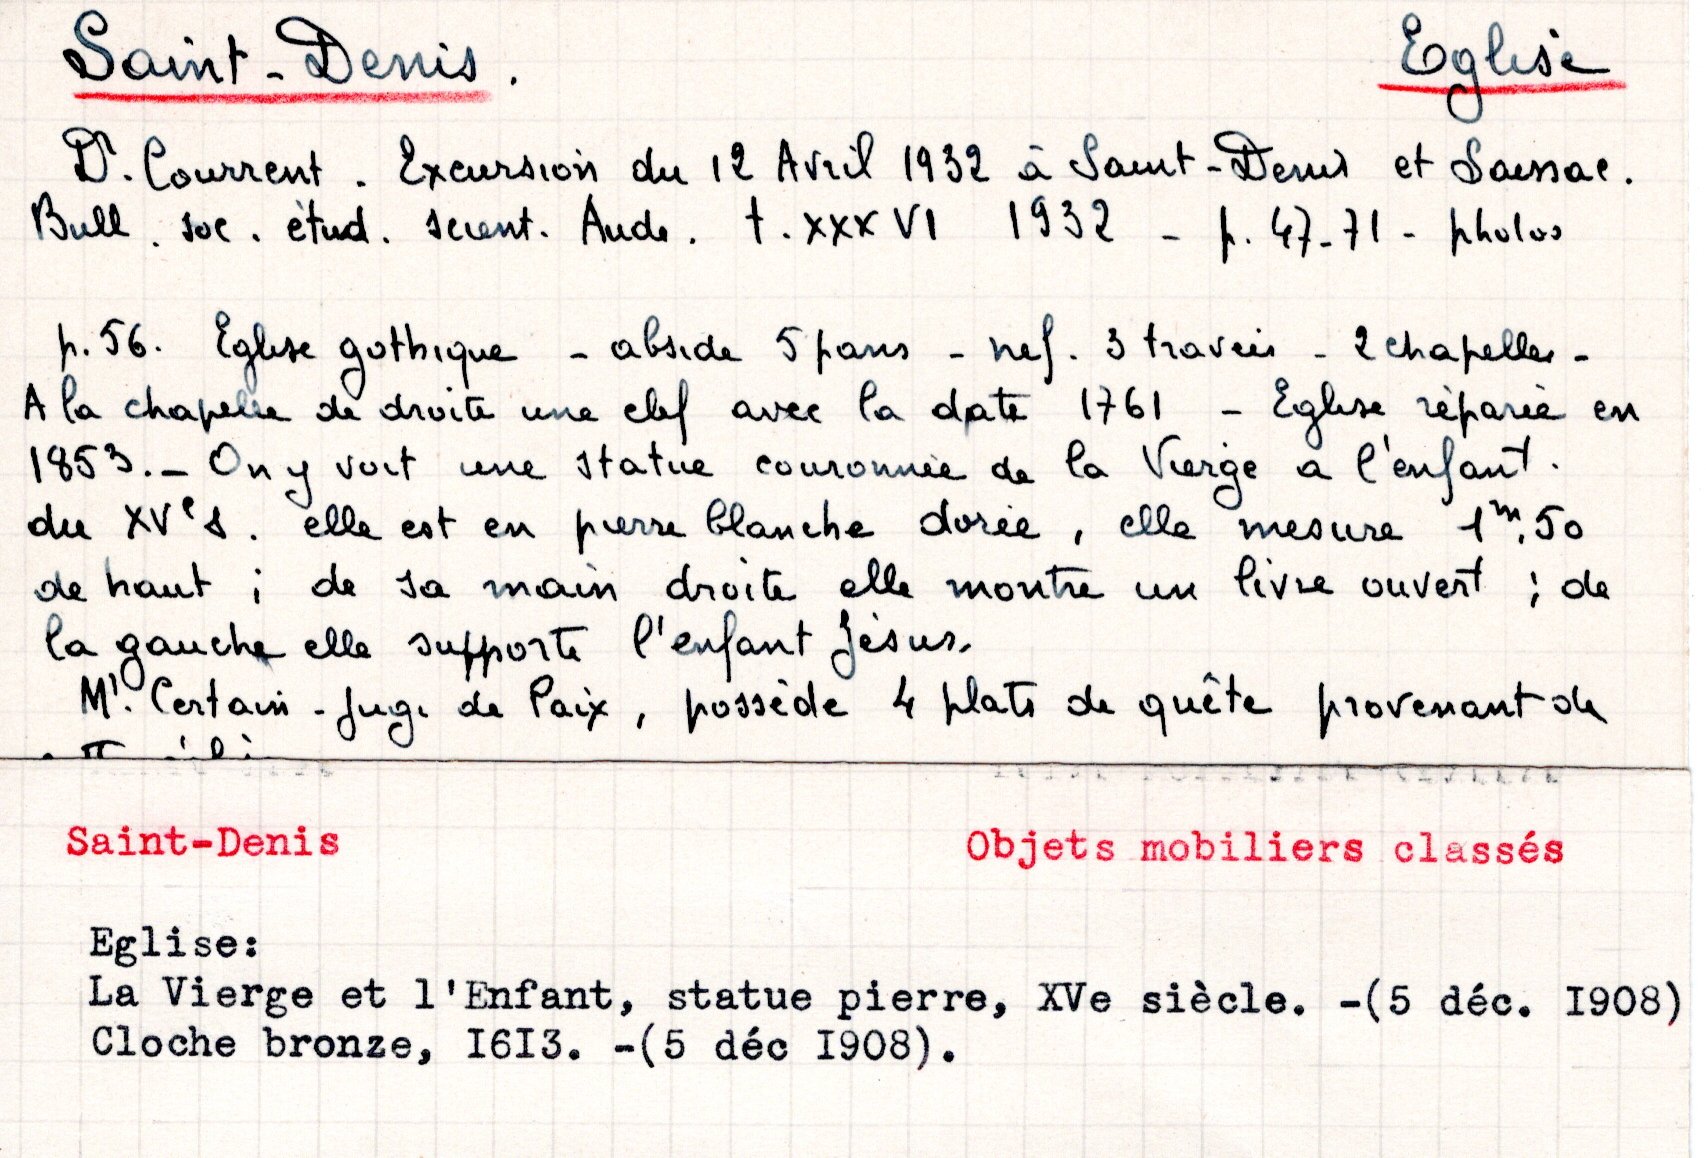 Saint-Denis. Eglise
Dr. Courrent. Excursion du 12 Avril 1932 à Saint-Denis et Saissac.
Bull. soc. étud. scient. Aude. t. XXXVI 1932 - p. 47-71 - photos
p. 56. Eglise gothique - abside 5 pans - nef. 3 travées - 2 chapelles -
A la chapelle de droite une clef avec la date 1761 - Eglise réparée en
1853. - On y voit une statue couronnée de la Vierge a l'enfant.
du XVe s. elle est en pierre blanche dorée, elle mesure 1m,50
de haut ; de sa main droite elle montre un livre ouvert ; de
la gauche elle supporte l'enfant Jésus.
Mr. Certain - Juge de Paix, possède 4 plats de quête provenant de
Saint-Denis Objets mobiliers classés
Eglise:
La Vierge et l'Enfant, statue pierre, XVe siècle. -(5 déc. I908)
Cloche bronze, I6I3. -(5 déc I908).